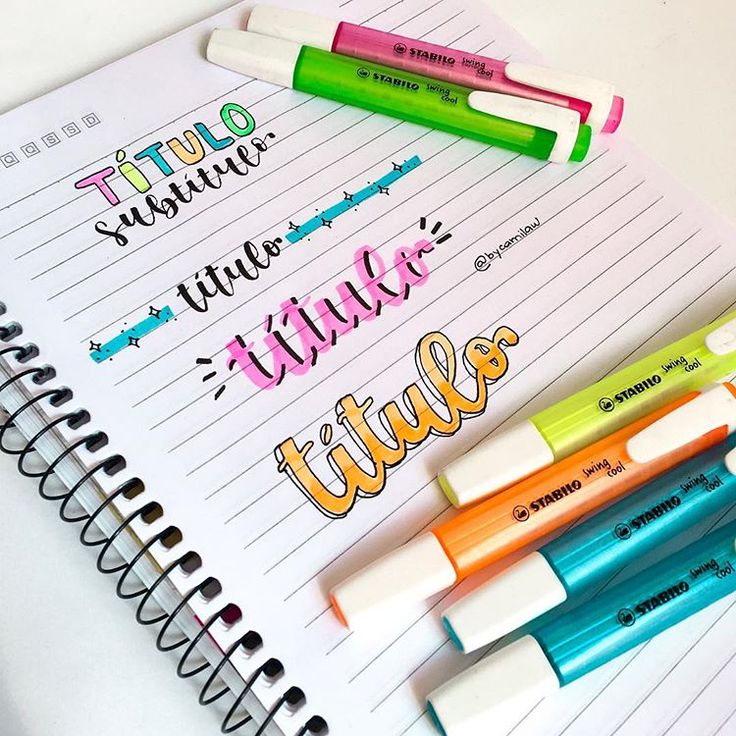 STABILO swing cool
STABILO swing cool
Q Q S S D
TÍTULO
subtítulo
título
título
título
@bycamilaw
STABILO swing cool
STABILO swing cool
STABILO swing cool
STABILO swing cool